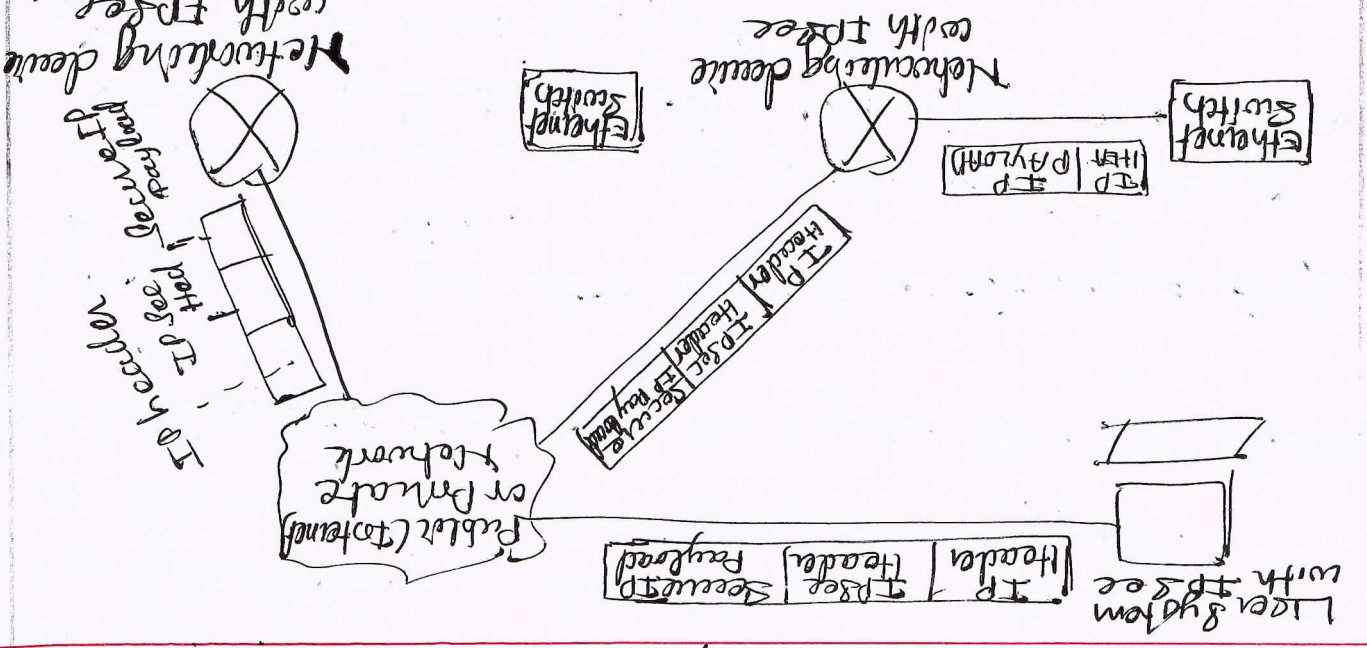 User System
with IPSec
IP
Header
IPSec
Header
Secure IP
Payload
Public (Internet)
or Private
Network
IP
Header
IPSec
Header
Secure
IP
Payload
IP header
IPSec
Head
Secure IP
payload
Ethernet
Switch
IP
HEA
IP
PAYLOAD
Networking device
with IPSec
Ethernet
Switch
Networking device
with IPSec